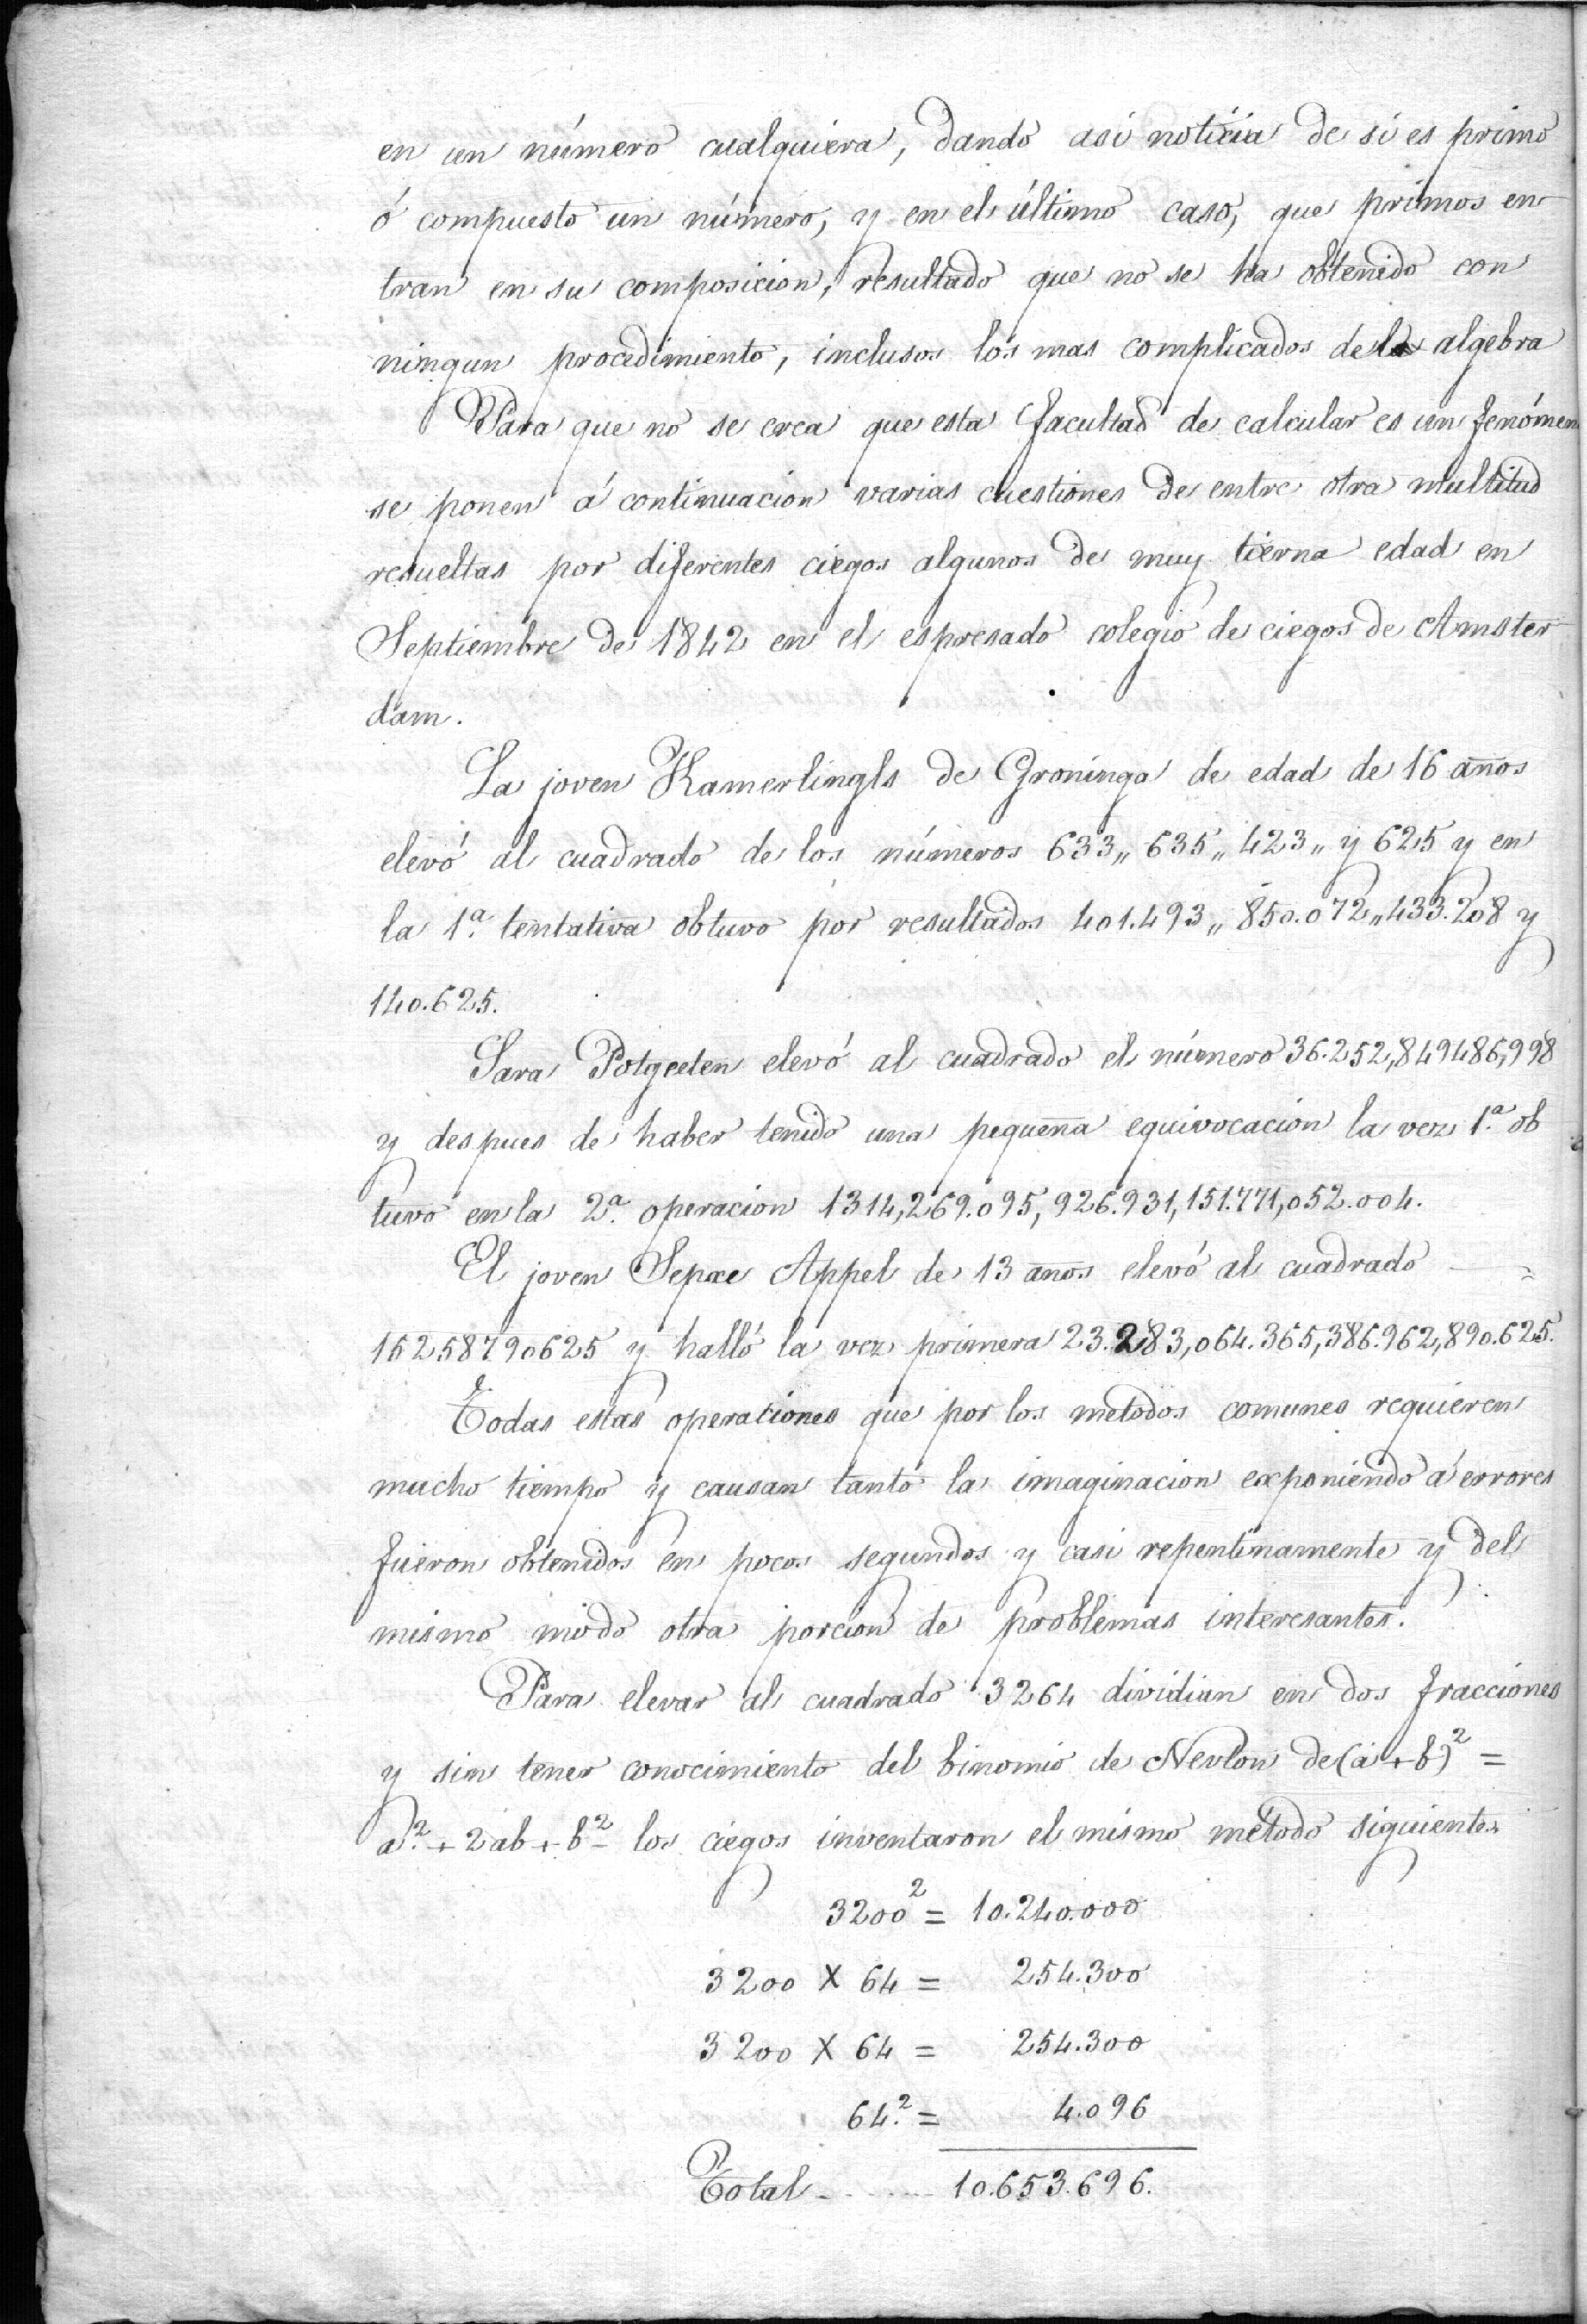 en un número cualquiera, dando asi noticia de si es primo
ó compuesto un número, y en el último caso, que primos en
tran en su composicion, resultado que no se ha obtenido con
ningun procedimiento, inclusos los mas complicados del algebra
Para que no se crea que esta facultad de calcular es un fenómen
se ponen á continuacion varias cuestiones de entre otra multitud
resueltas por diferentes ciegos algunos de muy tierna edad en
Septiembre de 1842 en el espresado colegio de ciegos de Amster
dam.
La joven Kamerlingls de Groninga de edad de 16 años
elevó al cuadrado de los números 633„ 635„ 423„ y 625 y en
la 1.ª tentativa obtuvo por resultados 401.493„ 850.072„ 433.208 y
140.625.
Sara Potgeeten elevó al cuadrado el número 36.252,849486,998
y despues de haber tenido una pequeña equivocacion la vez 1.ª ob
tuvo en la 2.ª operacion 1314,269.095,926.931,151.771,052.004.
El joven Sepxe Appel de 13 años elevó al cuadrado =
152587.90625 y halló la vez primera 23.283,064.365,386.962,890.625.
Todas estas operaciones que por los metodos comunes requieren
mucho tiempo y causan tanto la imaginacion exponiendo á errores
fueron obtenidos en pocos segundos y casi repentinamente y del
mismo modo otra porcion de problemas interesantes.
Para elevar al cuadrado 3264 dividian en dos fracciones
y sin tener conocimiento del binomio de Nevlon de (a+b)² =
a²+2ab+b² los ciegos inventaron el mismo método siguiente.
3200² = 10.240.000
3200 X 64 = 254.300
3200 X 64 = 254.300
64.² = 4.096
Total - ...... 10.653.696.